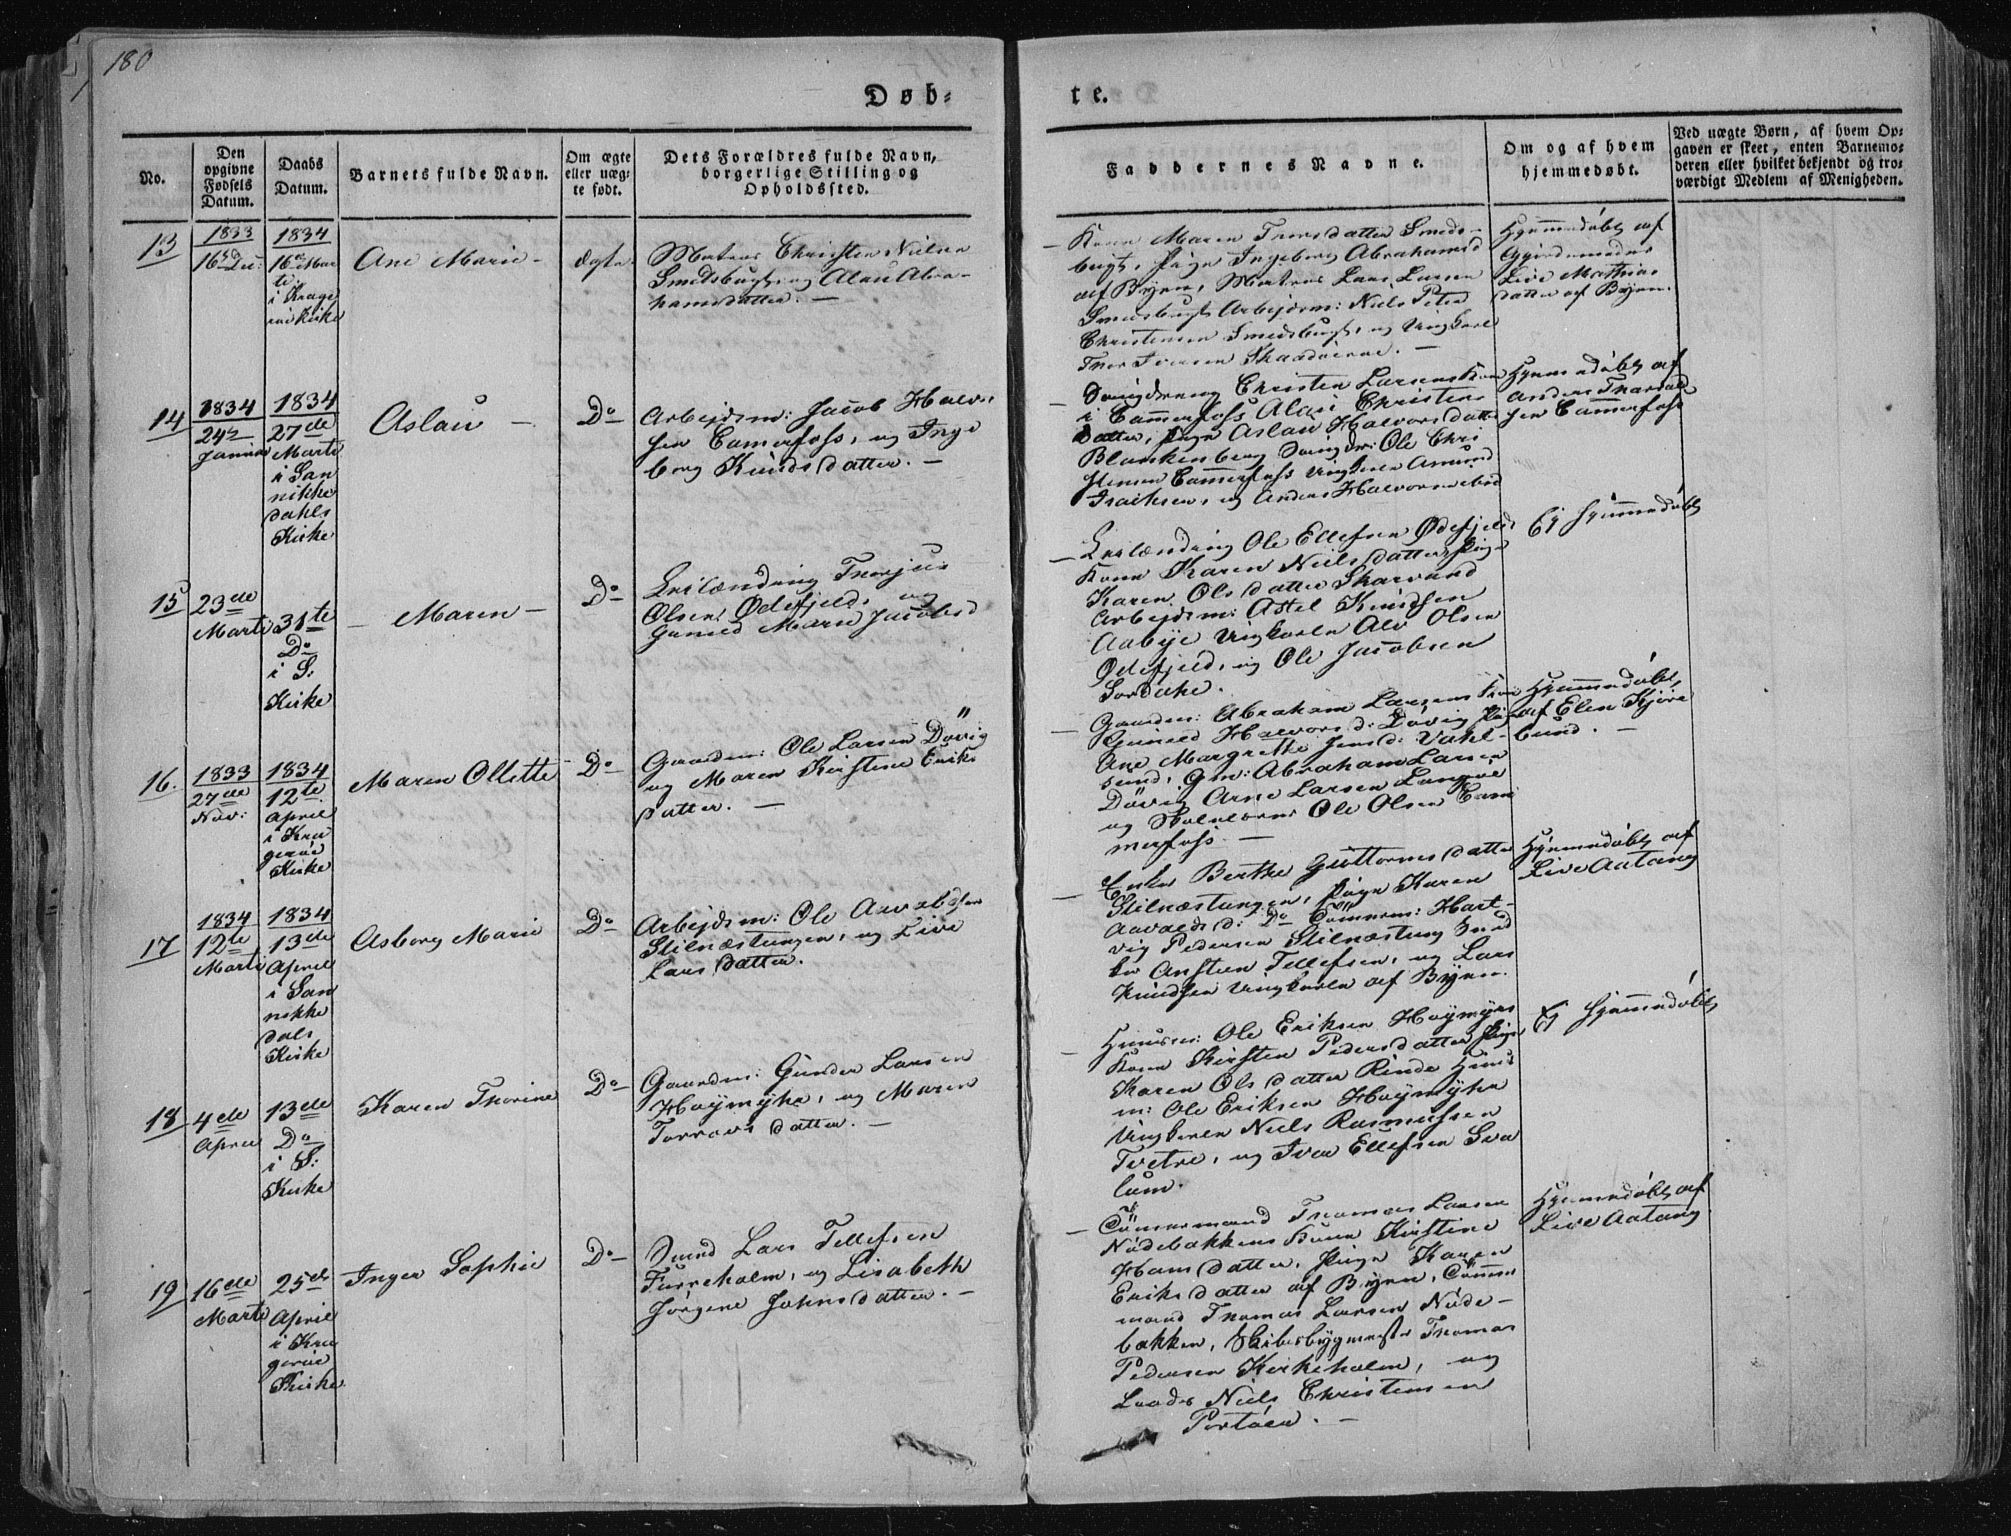 180
Døb-
te.
No.
Den opgivne Fødsels Datum.
Daabs Datum.
Barnets fulde Navn.
Om ægte eller uæg-te født.
Dets Forældres fulde Navn, borgerlige Stilling og Opholdssted.
Faddernes Navne.
Om og af hvem hjemmedøbt.
Ved uægte Børn, af hvem Op-gaven er skeet, enten Barnemo-deren eller hvilket bekjendt og tro-værdigt Medlem af Menigheden.
13
1833
1834
Ane Marie –
ægte
Matros Christen Nielsen
Smedsbugt, og Alau Abra-
hamsdatter. –
i Krage
röe Kirke
Kone Maren Thorsdatter Smeds-
bugt, Pige Ingeborg Abrahamsd
af Byen, Matros Lars Larsen
Smedsbugt Arbejdsm: Niels Peter
Christensen Smedsbugt, og Ungkarl
Thor Iversen
Hjemmedöbt af
Live Mathias
datter af Byen.
14
1834
24de
Januar
1834
27de
Marts
i San
nikke
dahls
Kirke
Aslau –
Do
Arbejdsm: Jacob Halvor
sen Tamerfoss, og Inge
borg Knudsdatter. –
Christen Larsens Kone
i Tammerfoss Alau Christens
datter, Pige Aslau Halvorsdatter
Blankenberg Ole Chri
stensen Tammerfoss Ungkarl Amund
Isaksen, og Anders Halvorsen
Hjemmedöbt af
Anders Thorvald
sen Tamerfoss
15
23de
Marts
31te
Do
i S:
Kirke
– Maren –
Do
Leilænding Thorjus
Olsen Ødefjeld, og
Gunild Marie Jacobsd
Leilænding Ole Ellefsen Ødefjelds
Kone Karen Nielsdatter, Pige
Karen Olsdatter Skarvand
Arbejdsm: Astel Knudsen
Aabye Ungkarle Alv Olsen
Ødefjeld, og Ole Jacobsen
Sordahl.
Ej Hjemmedöbt
16.
1833
27de
Nov:
1834
12te
April
i Kra
geröe
Kirke
Maren Ollette
Do
Gaardm: Ole Larsen Dövig
og Maren Kirstine Eriks
datter. –
Gaardm: Abraham Larsens Kone
Gunild Halvorsd: Dövig Pige
Ane Margrethe Jensd: Vahl-
sund, Gm: Abraham Larsen
Dövig Arne Larsen Langöe
og Ole Olsen Tam
merfoss –
Hjemmedöbt
af Elen Kjöre
bund. –
17
1834
12te
Marts
1834
13de
April
i San
nikke
dals
Kirke
Asborg Marie
Do
Arbejdsm: Ole Aavaldsen
Stilnæstangen, og Live
Larsdatter.
Enke Berthe Guttormsdatter
Stilnæstangen, Pige Karen
Aavaldsd: Do Tömmerm: Hart-
vig Pedersen Stilnæstang Smed
Tellefsen, og Lars
Knudsen Ungkarle af Byen.
Hjemmedöbt af
Live Aatang
18
4de
April
13de
Do
i S:
Kirke
Karen Thorine
Do
Gaardm: Gunder Larsen
Höymyhr, og Maren
Torravsdatter. –
Huusm: Ole Eriksen Höymyrs
Kone Kirsten Pedersdatter Pige
Karen Olsdatter Rinde Huus
m: Ole Eriksen Höymyhr
Ungkarle Niels Rasmussen
Tvetre, og Iver Ellefsen Sva
lum.
Ej Hjemmedöbt
19
16de
Marts
25de
April
i Kra
geröe
Kirke
Inger Sophie
Do
Smed Lars Tellefsen
Furreholm, og Lisabeth
Jörgine Johnsdatter. –
Tömmermand Thomas Larsen
Nödebakkens Kone Kirstine
Hansdatter, Pige Karen
Eriksdatter af Byen, Tömmer
mand Thomas Larsen Nöde-
bakken, Skibsbygmester Thomas
Pedersen Kirkeholm, og
Lods Niels Christensen
Portöen. –
Hjemmedöbt af
Live Aatang